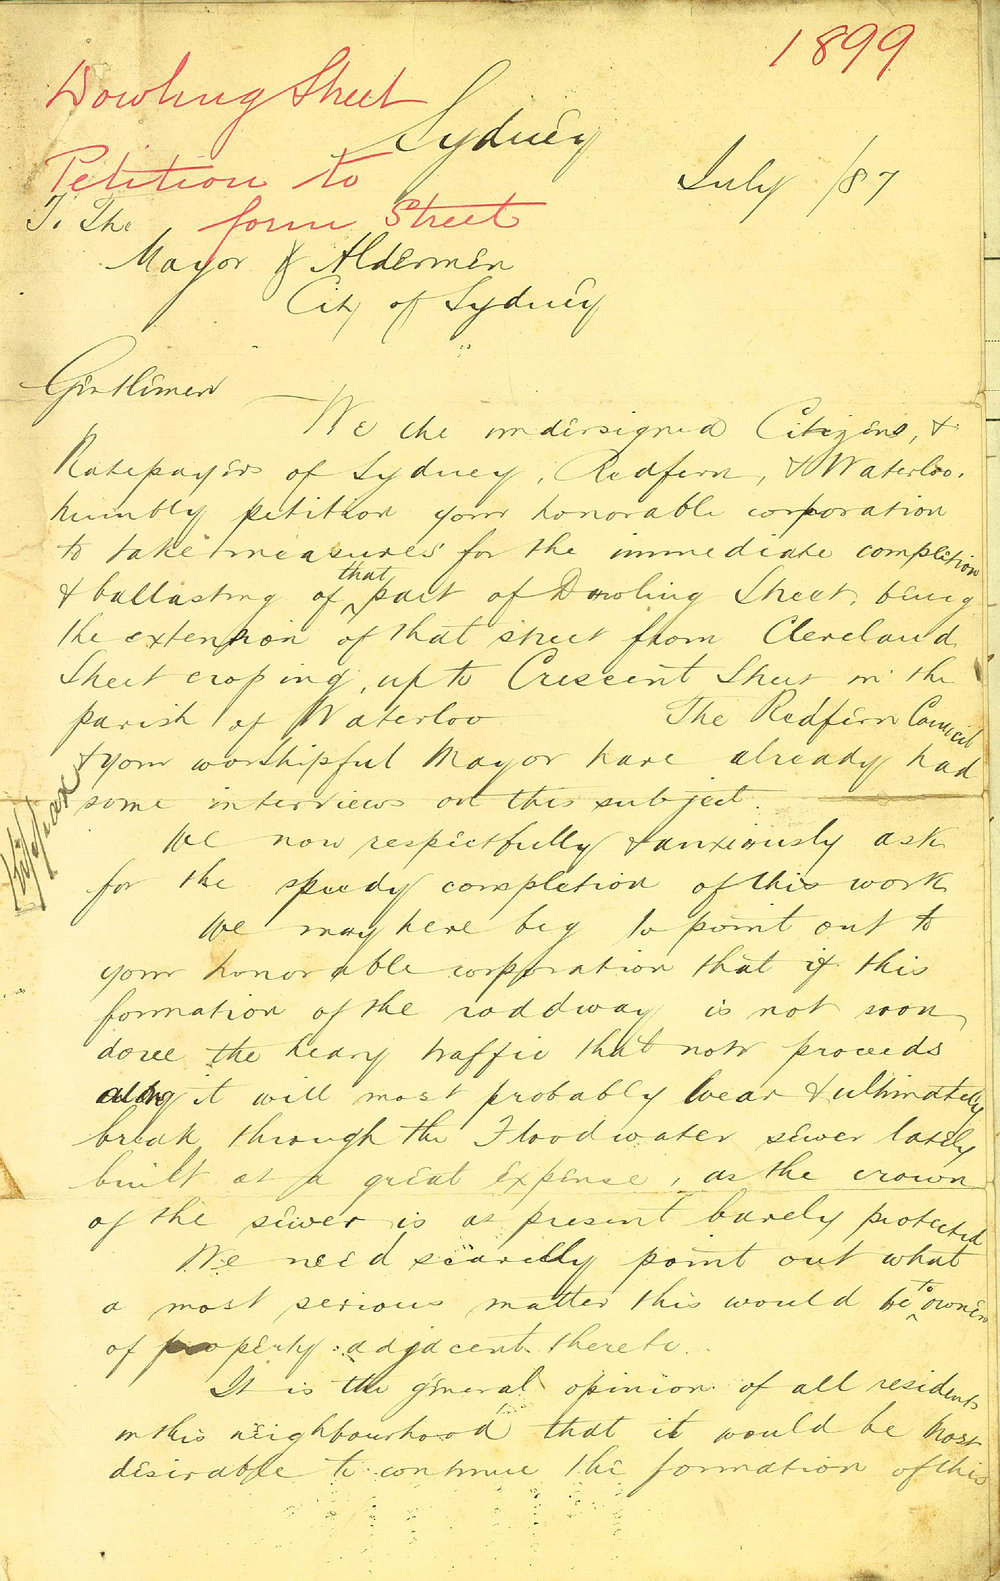 1899
Dowling Street
Sydney
Petition to
July /87
form Street
To The
Mayor & Aldermen
City of Sydney
Gentlemen
We the undersigned Citizens, &
Ratepayers of Sydney, Redfern, & Waterloo,
humbly petition your honorable corporation
to take measures for the immediate completion
& ballasting of that part of Dowling Street, being
the extension of that street from Cleveland
Street croping, up to Crescent Street in the
parish of Waterloo The Redfern Council
& your worshipful Mayor have already had
some interviews on this subject.
We now respectfully & anxiously ask
for the speedy completion of this work
We may here beg to point out to
your honorable corporation that if this
formation of the roadway is not soon
done the heavy traffic that now proceeds
along it will most probably wear & ultimately
break through the Floodwater sewer lately
built at a great expense, as the crown
of the sewer is at present barely protected
We need scarcely point out what
a most serious matter this would be to owners
of property adjacent thereto.
It is the general opinion of all residents
in this neighbourhood that it would be most
desirable to continue the formation of this